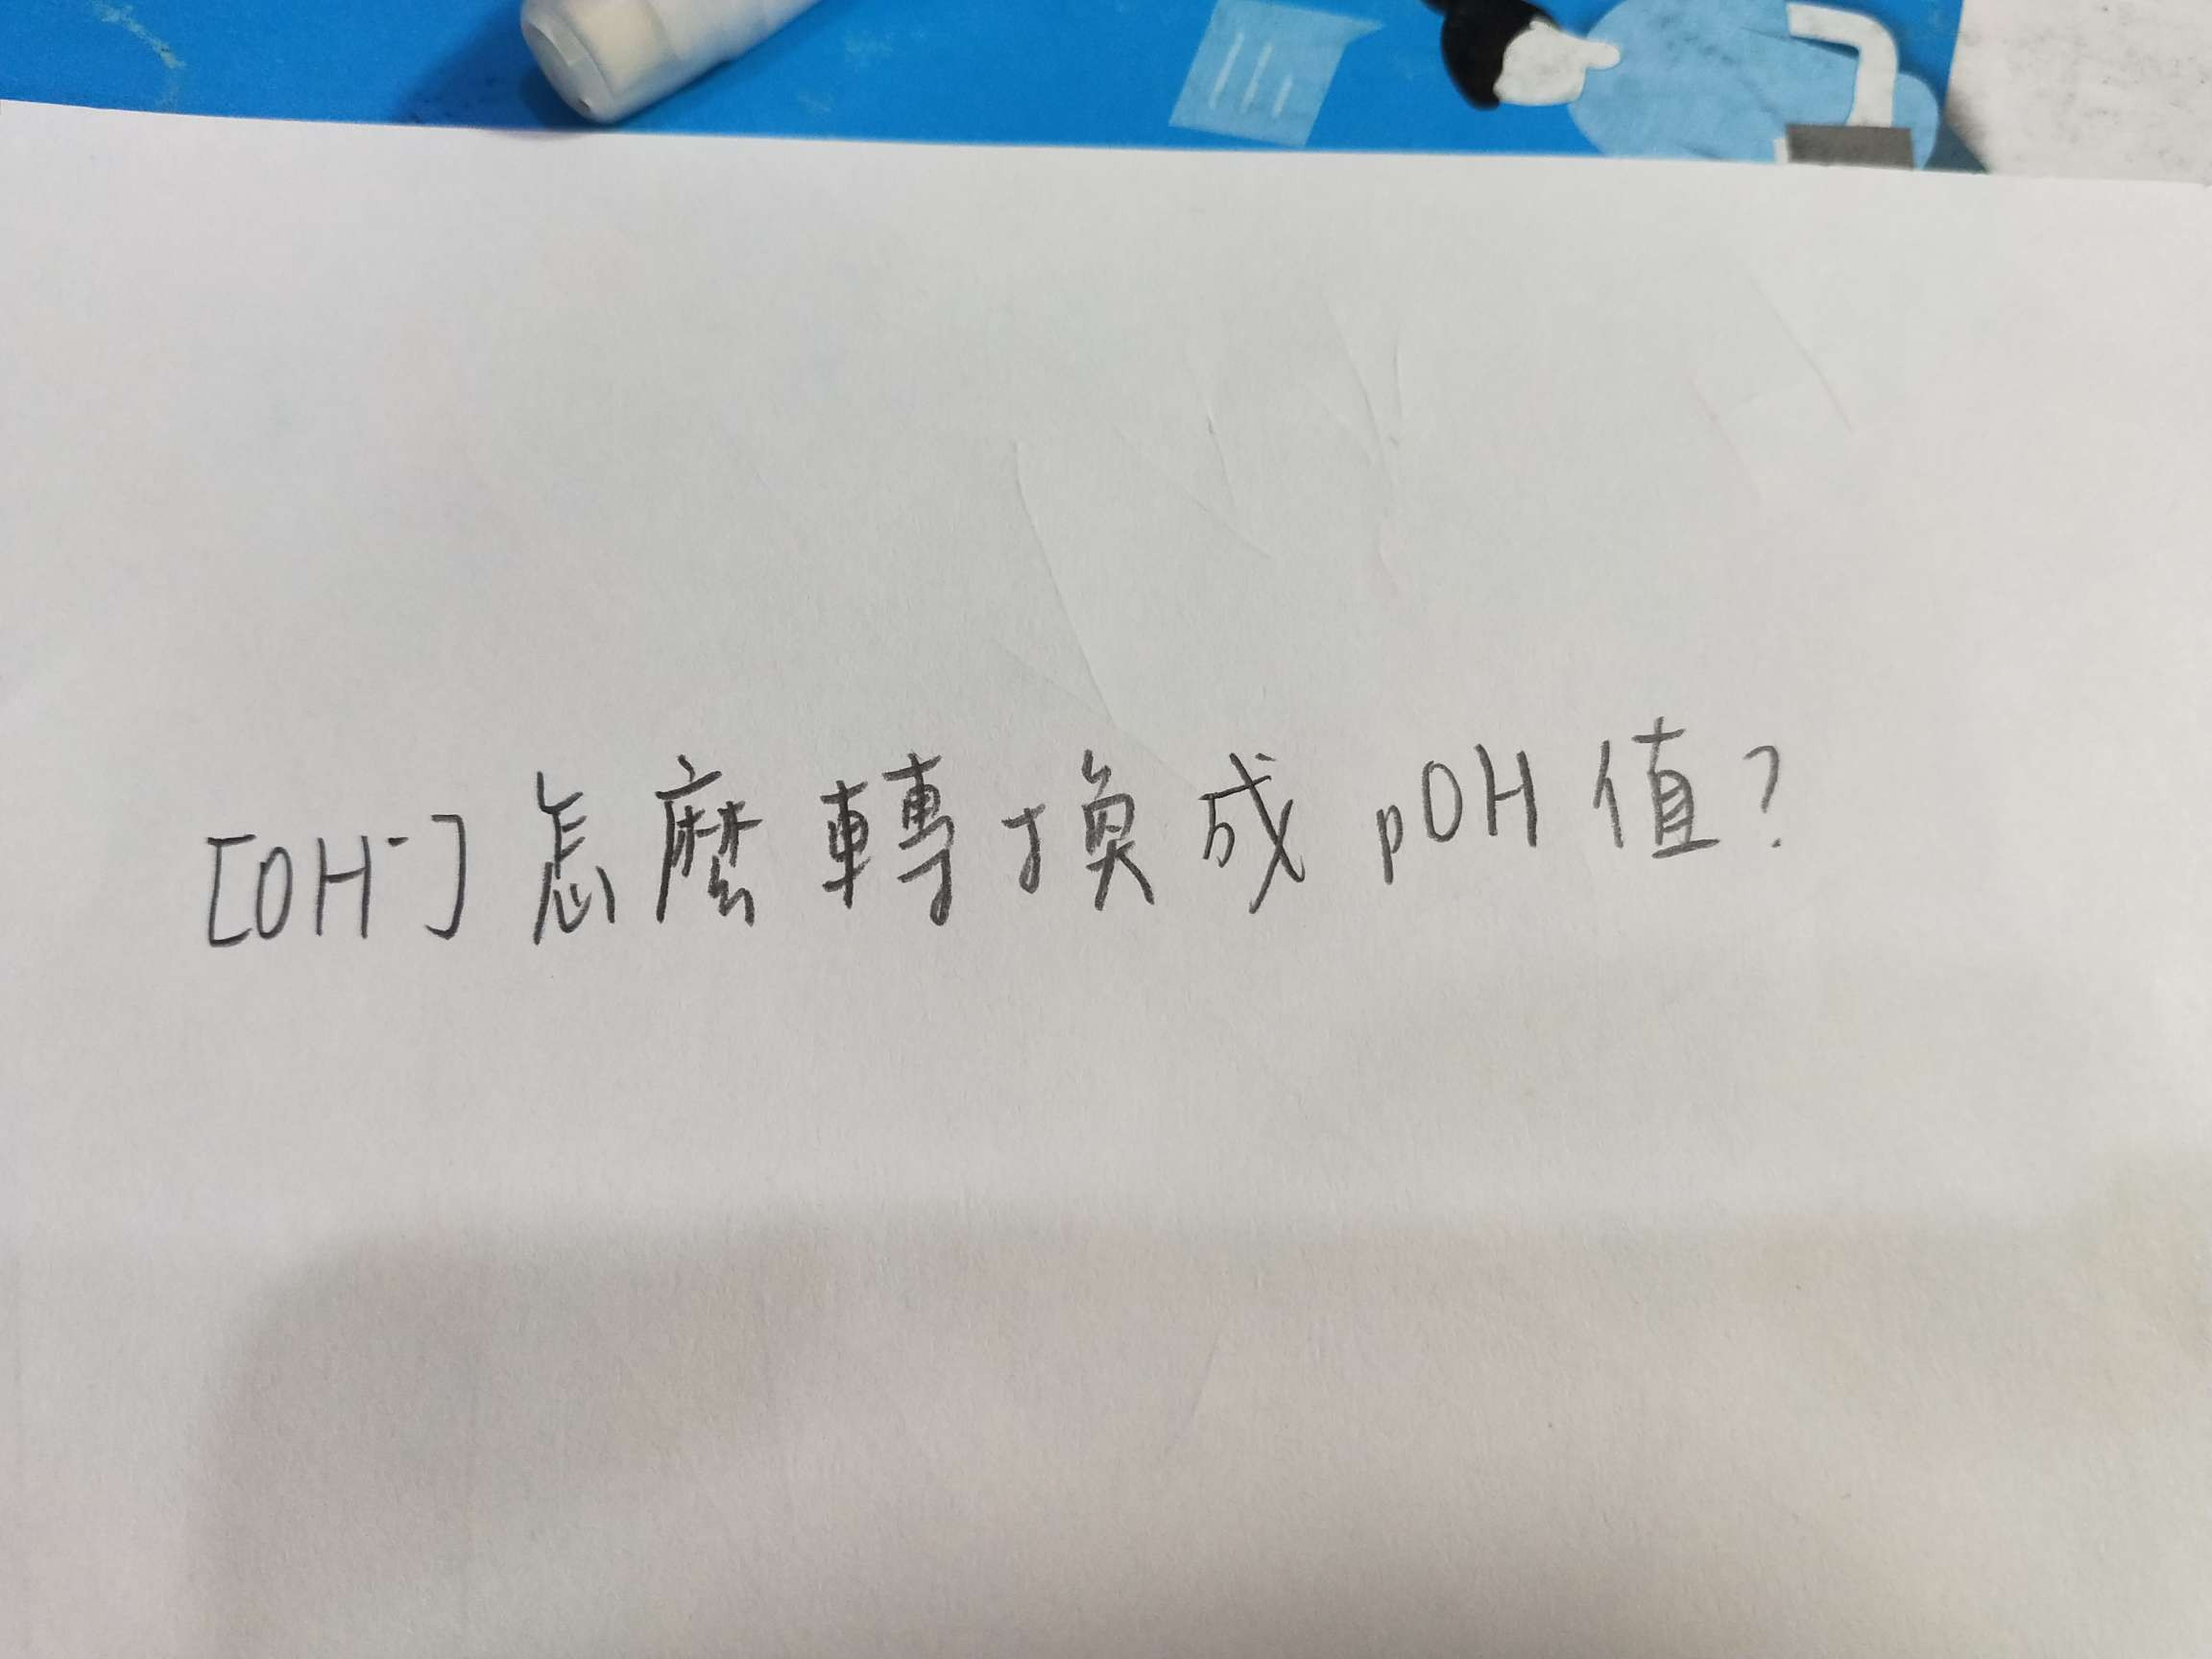 [OH⁻]怎麼轉換成pOH值?